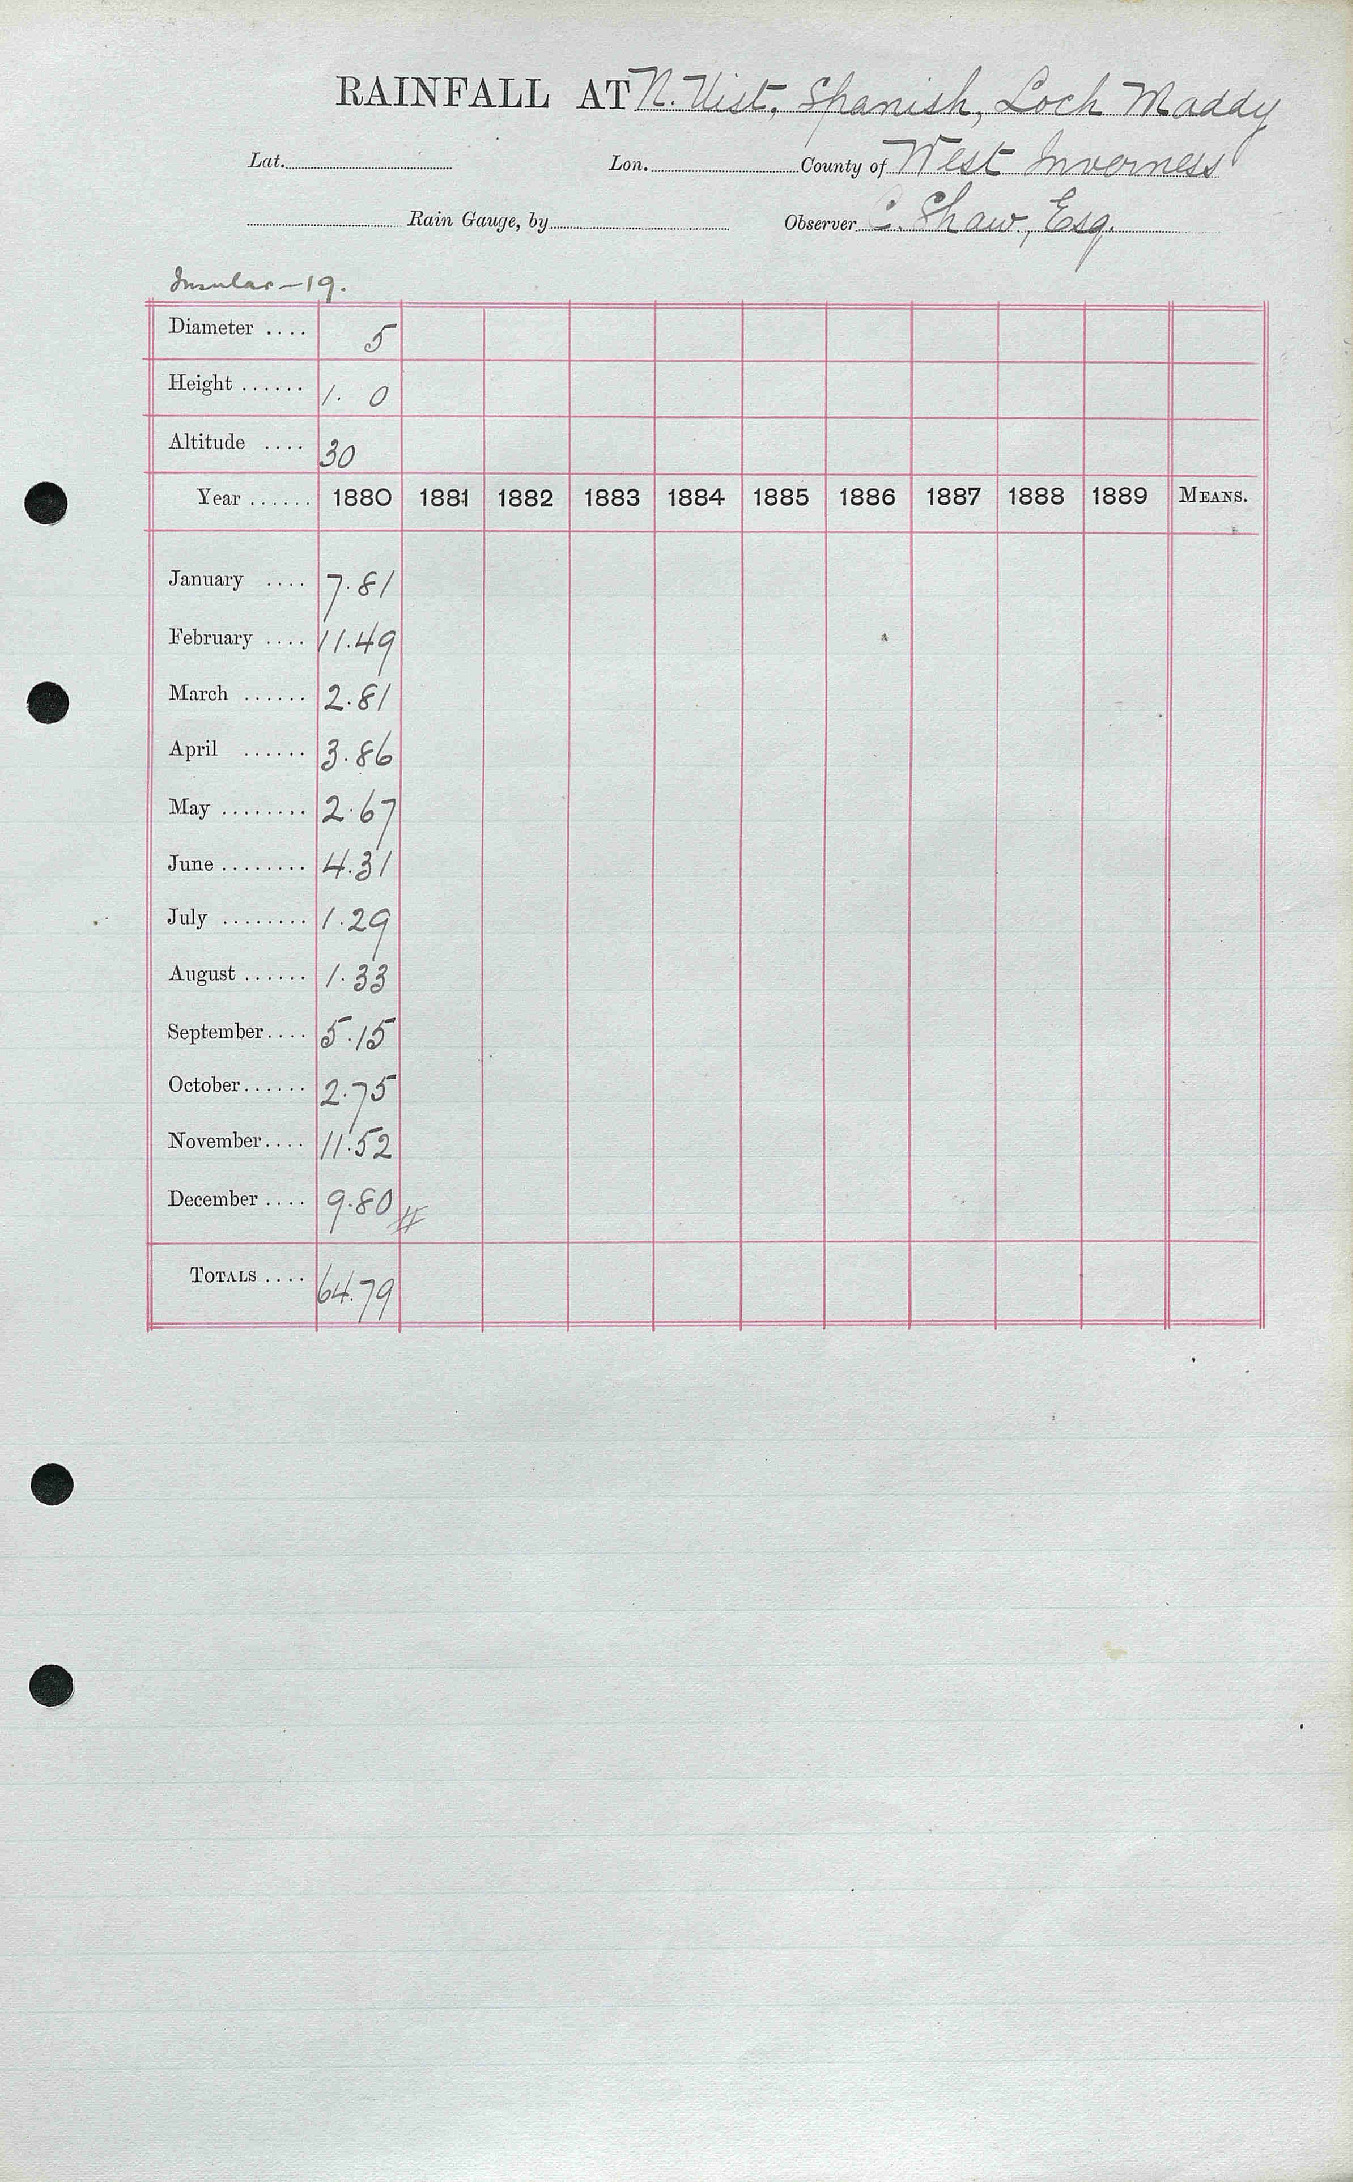 RAINFALL AT N. Uist, Spanish, Loch Maddy
Lat. Lon. County of West Inverness
Rain Gauge, by Observer C. Shaw, Esq.
Insular - 19.
Diameter .... 5
Height ...... 1. 0
Altitude .... 30
Year ...... 1880 1881 1882 1883 1884 1885 1886 1887 1888 1889 MEANS.
January .... 7.81
February .... 11.49
March ...... 2.81
April ...... 3.86
May ........ 2.67
June ........ 4.31
July ........ 1.29
August ...... 1.33
September .... 5.15
October ...... 2.75
November .... 11.52
December .... 9.80 #
TOTALS .... 64.79